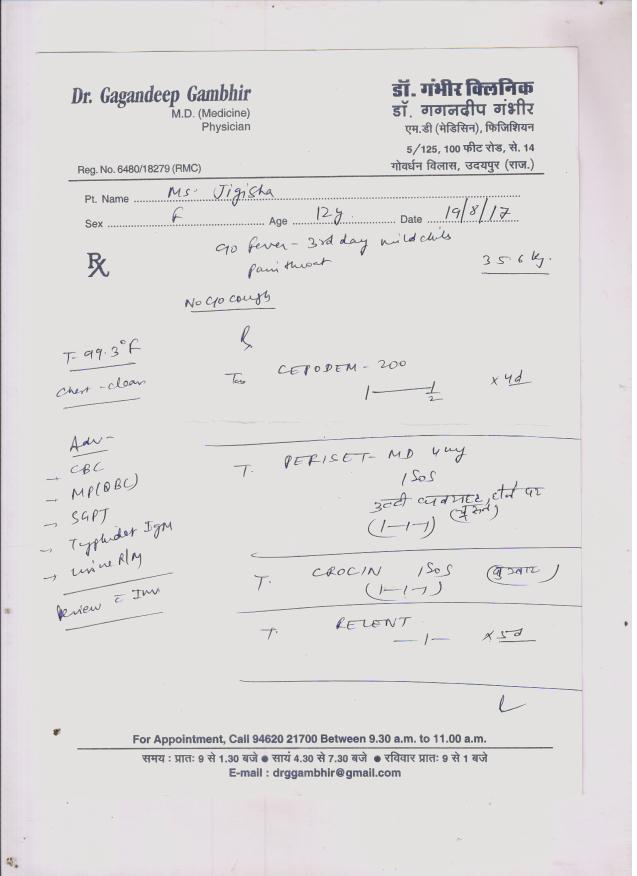 Dr. Gagandeep Gambhir
M.D. (Medicine)
Physician
Reg. No. 6480/18279 (RMC)
डॉ. गंभीर क्लिनिक
डॉ. गगनदीप गंभीर
एम.डी (मेडिसिन), फिजिशियन
5/125, 100 फीट रोड, से. 14
गोवर्धन विलास, उदयपुर (राज.)
Pt. Name Ms. Jigisha
Sex F Age 12y Date 19/8/17
℞ c/o fever - 3rd day mild chills
pain throat
35.6 kg.
No c/o cough
T- 99.3°F
Chest - clear
Adv -
→ CBC
→ MP(QBC)
→ SGPT
→ Typhidot IgM
→ Urine R/M
Review c Inv
℞
Tab CEPODEM - 200
1 — 1/2 x 4d
T. PERISET - MD 4mg
1 SOS
(1-1-1)
T. CROCIN 1 SOS (बुखार)
(1-1-1)
T. RELENT
— 1 — x 5d
For Appointment, Call 94620 21700 Between 9.30 a.m. to 11.00 a.m.
समय : प्रातः 9 से 1.30 बजे ● सायं 4.30 से 7.30 बजे ● रविवार प्रातः 9 से 1 बजे
E-mail : drggambhir@gmail.com